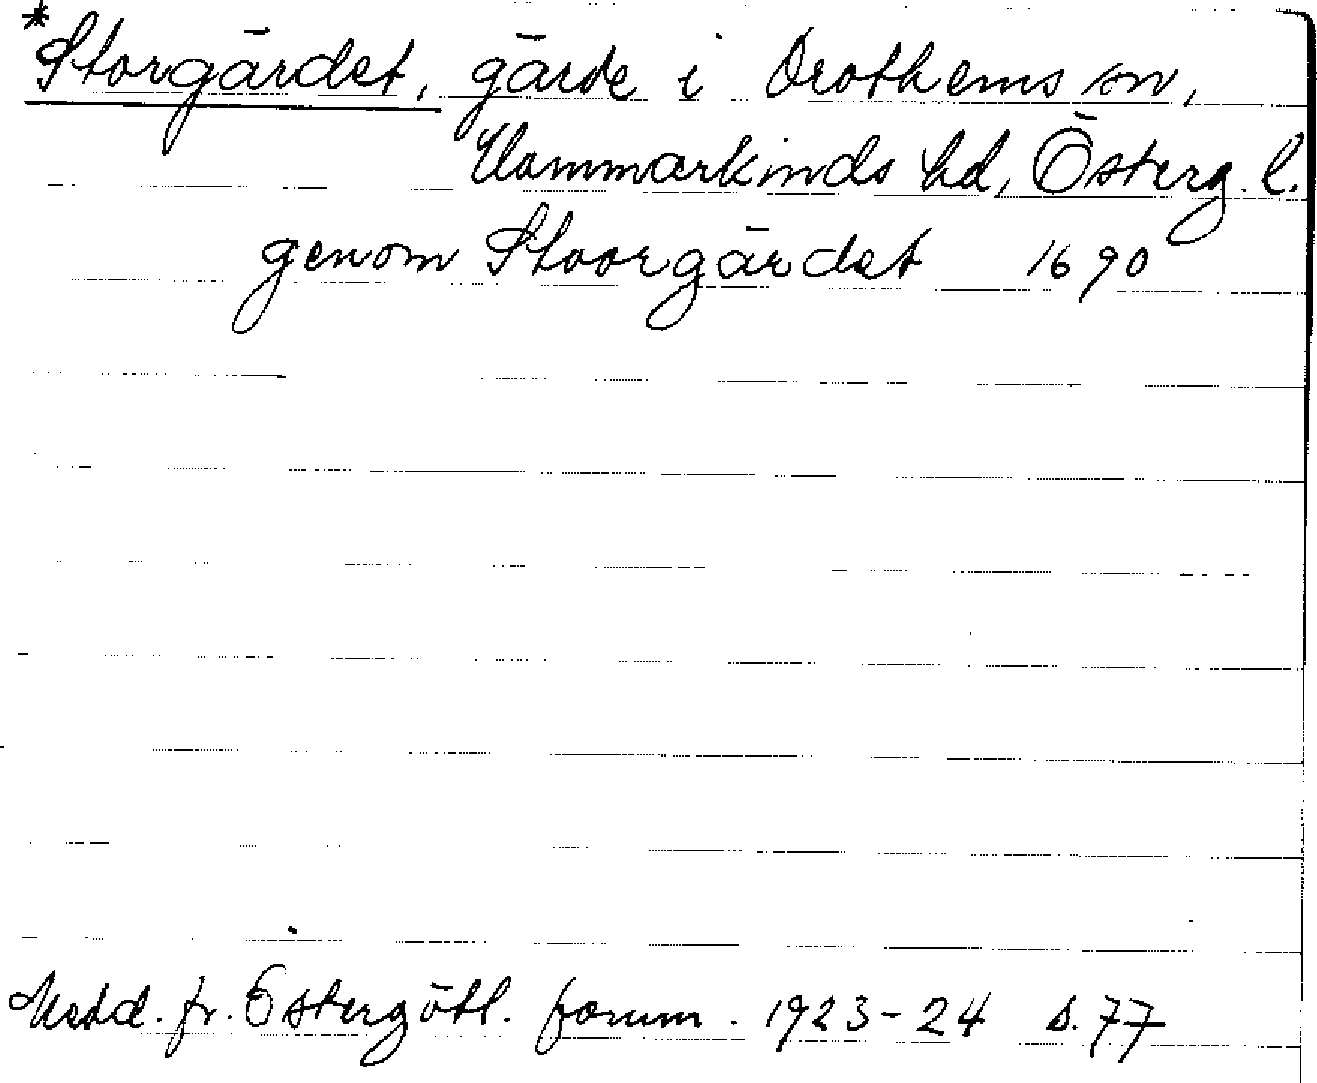 *Storgärdet, gärde i Drothems sn,
Hammarkinds hd, Österg. l.
genom Stoorgärdet 1690
Medd. fr. Östergötl. fornm. 1923-24 s. 77